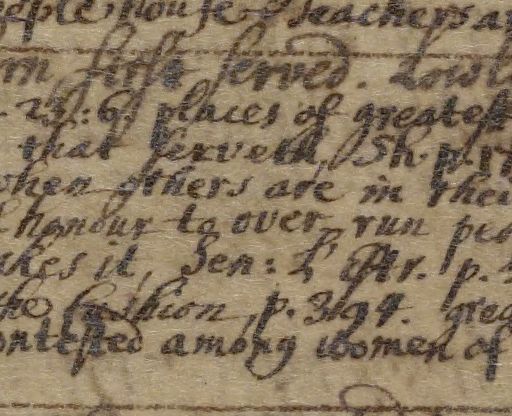 house & Teachers a
rm first served. Lowl
. 23: 6. places of greatest
that serveth, Sh. p. 17
when others are in thei
honour to over run pe
akes it, Sen: L'Estr. p.
the Cushion, p. 394. grea
ontested among women of